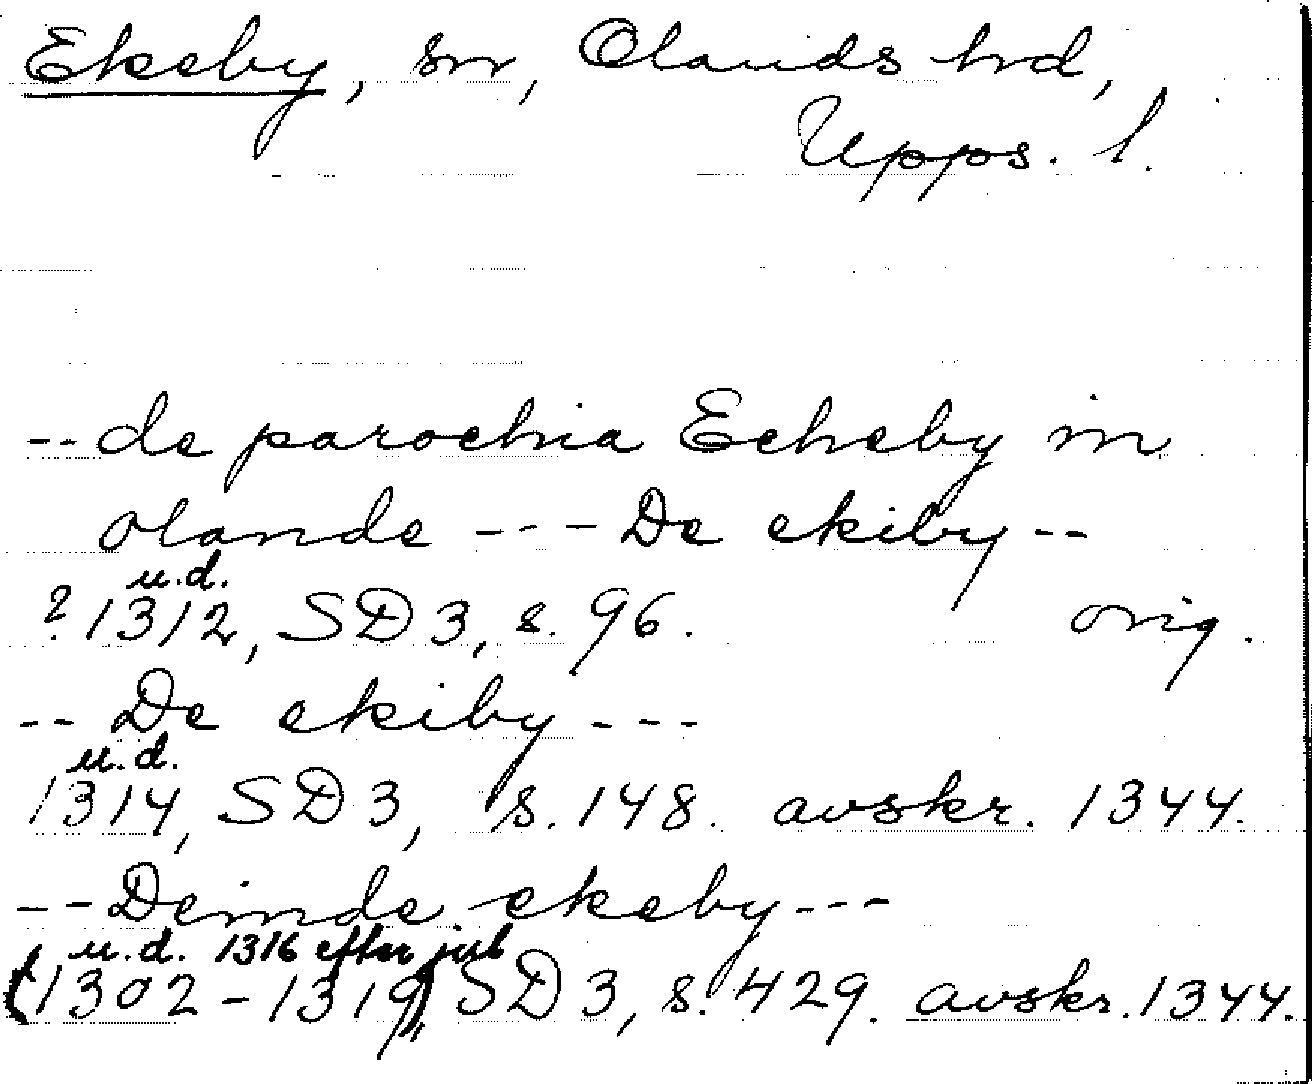 Ekeby, sn, Olands hd,
Upps. l.
-- de parochia Echeby in
olande --- De ekiby --
u.d.
? 1312, SD 3, s. 96. orig.
-- De ekiby ---
u.d.
1314, SD 3, s. 148. avskr. 1344.
-- Deinde ekeby ---
u.d. 1316 efter jul
(1302-1319), SD 3, s. 429. avskr. 1344.